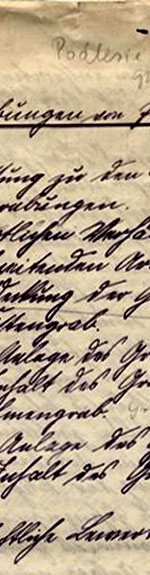 Podlesie
bungen von
tung zu den
rabungen.
tlichen Verhä
eitenden Ar
deckung der G
stengrab.
Anlage des Gr
nhalt des Gr
rnengrab.
Anlage des
Inhalt des Gr
ftliche Bewert